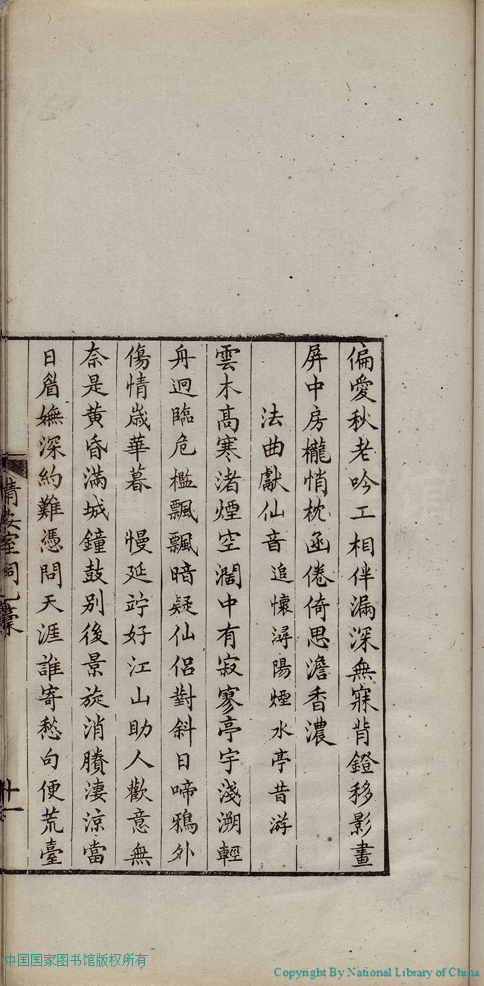 偏愛秋老吟工相伴漏深無寐背鐙移影畫
屏中房櫳悄枕函倦倚思澹香濃
法曲獻仙音追懷潯陽煙水亭昔游
雲木高寒渚煙空濶中有寂寥亭宇淺溯輕
舟迥臨危檻飄飄暗疑仙侶對斜日啼鴉外
傷情歲華暮 慢延竚好江山助人歡意無
奈是黃昏滿城鐘鼓別後景旋消賸淒涼當
日眉嫵深約難憑問天涯誰寄愁句便荒臺
中国国家图书馆版权所有
Copyright By National Library of China